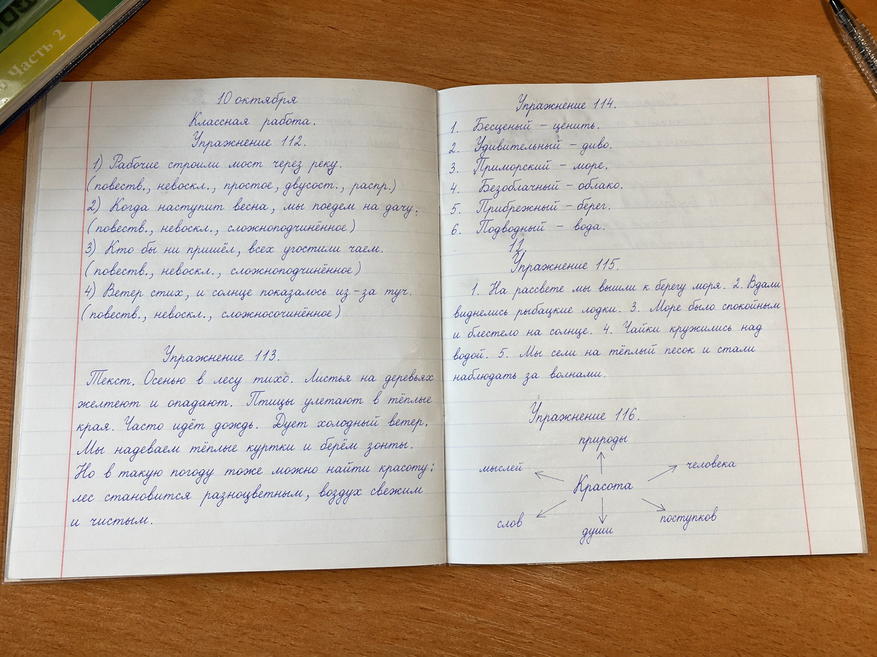 Часть 2
10 октября
Классная работа.
Упражнение 112.
1) Рабочие строили мост через реку.
(повеств., невоскл., простое, двусост., распр.)
2) Когда наступит весна, мы поедем на дачу.
(повеств., невоскл., сложноподчинённое)
3) Кто бы ни пришёл, всех угостили чаем.
(повеств., невоскл., сложноподчинённое)
4) Ветер стих, и солнце показалось из-за туч.
(повеств., невоскл., сложносочинённое)
Упражнение 113.
Текст. Осенью в лесу тихо. Листья на деревьях
желтеют и опадают. Птицы улетают в тёплые
края. Часто идёт дождь. Дует холодный ветер.
Мы надеваем тёплые куртки и берём зонты.
Но в такую погоду тоже можно найти красоту:
лес становится разноцветным, воздух свежим
и чистым.
Упражнение 114.
1. Бесценый – ценить.
2. Удивительный – диво.
3. Приморский – море.
4. Безоблачный – облако.
5. Прибрежный – берег.
6. Подводный – вода.
Упражнение 115.
1. На рассвете мы вышли к берегу моря. 2. Вдали
виднелись рыбацкие лодки. 3. Море было спокойным
и блестело на солнце. 4. Чайки кружились над
водой. 5. Мы сели на тёплый песок и стали
наблюдать за волнами.
Упражнение 116.
природы
мыслей
человека
Красота
слов
поступков
души